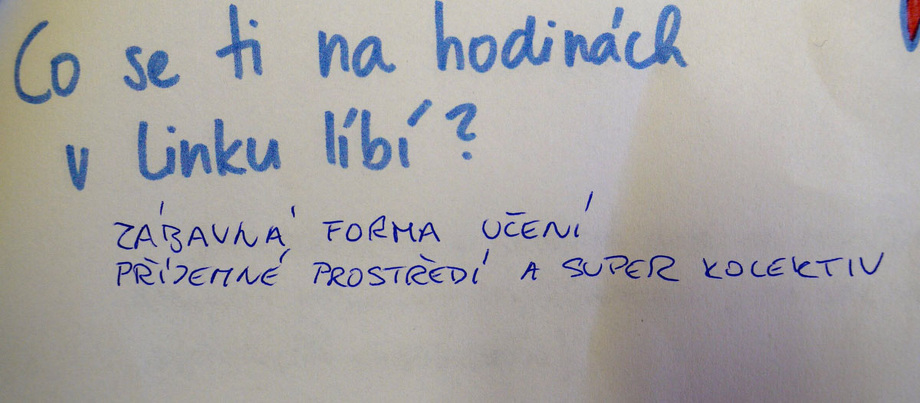 Co se ti na hodinách
v Linku líbí?
ZÁBAVNÁ FORMA UČENÍ
PŘÍJEMNÉ PROSTŘEDÍ A SUPER KOLEKTIV